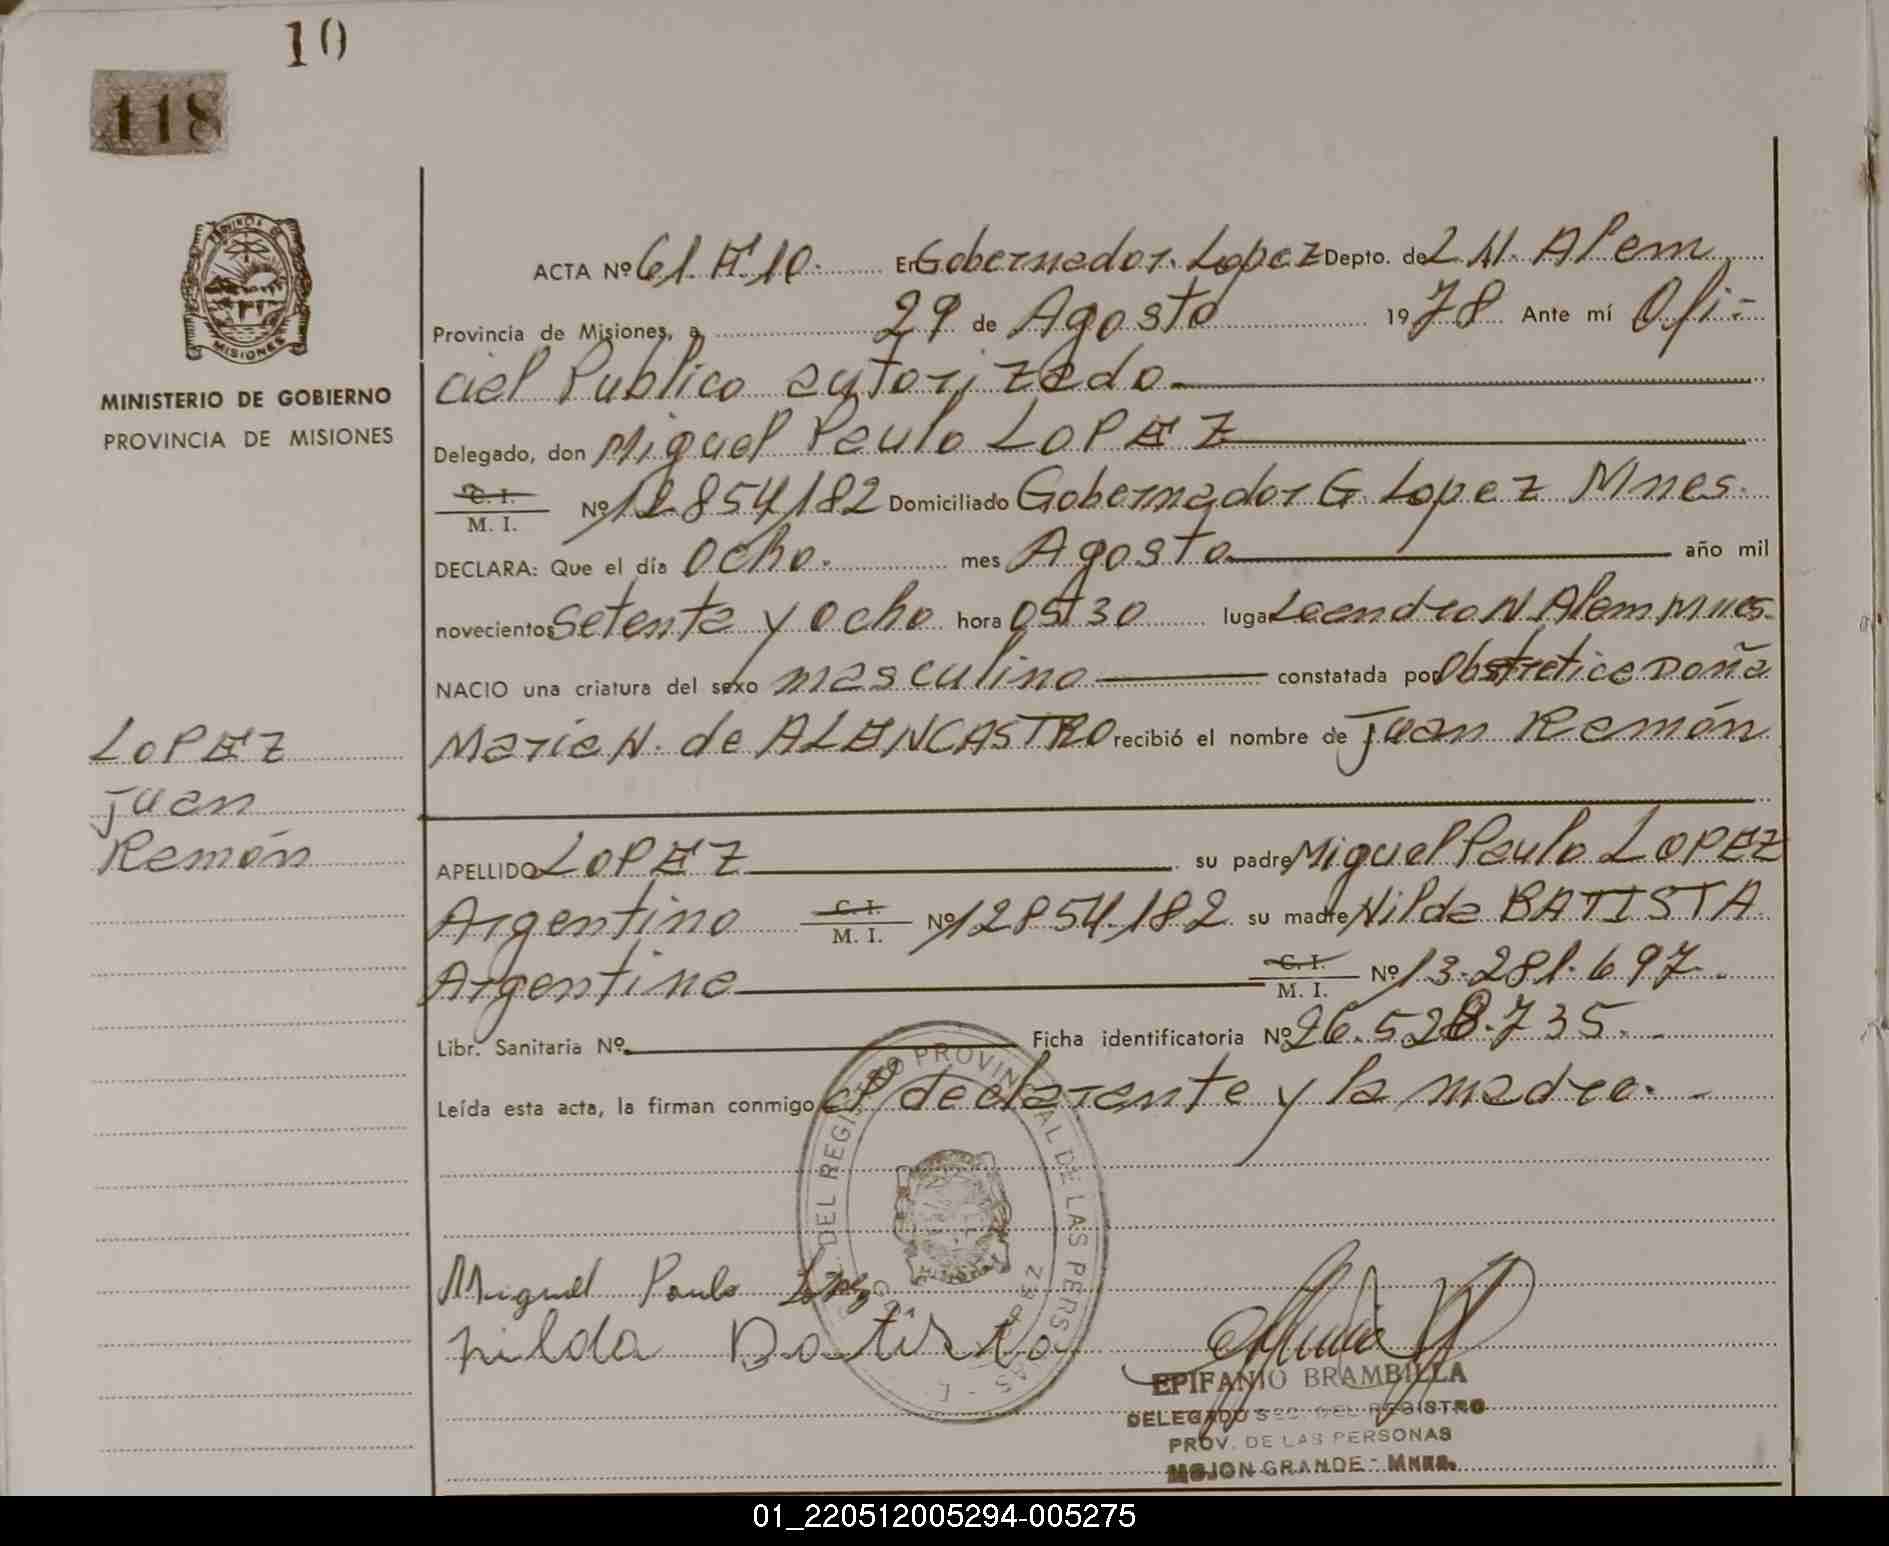 10
118
PROVINCIA DE
MISIONES
MINISTERIO DE GOBIERNO
PROVINCIA DE MISIONES
ACTA Nº 61. Fº 10. En Gobernador. Lopez Depto. de L. N. Alem
Provincia de Misiones, a 29 de Agosto 1978 Ante mí Ofi-
cial Publico autorizado
Delegado, don Miguel Paulo LOPEZ
C. I.
M. I. Nº 12.854,182 Domiciliado Gobernador G. Lopez Mnes.
DECLARA: Que el día ocho. mes Agosto año mil
novecientos setenta y ocho hora 05,30 lugar Leandro N. Alem Mnes.
NACIO una criatura del sexo masculino constatada por Obstretice Doña
Maria N. de ALENCASTRO recibió el nombre de Juan Ramón
LOPEZ
Juan
Ramón
APELLIDO LOPEZ su padre Miguel Paulo LOPEZ
Argentino C. I.
M. I. Nº 12854.182 su madre Nilda BATISTA
Argentina C. I.
M. I. Nº 13.281.697
Libr. Sanitaria Nº Ficha identificatoria Nº 26.528.735.
Leída esta acta, la firman conmigo el declarante y la madre.
DEL REGISTRO PROVINCIAL DE LAS PERSONAS
Miguel Paulo Lopez
nilda Batista
EPIFANIO BRAMBILLA
DELEGADO SEC. DEL REGISTRO
PROV. DE LAS PERSONAS
MOJON GRANDE - Mnes.
01_220512005294-005275